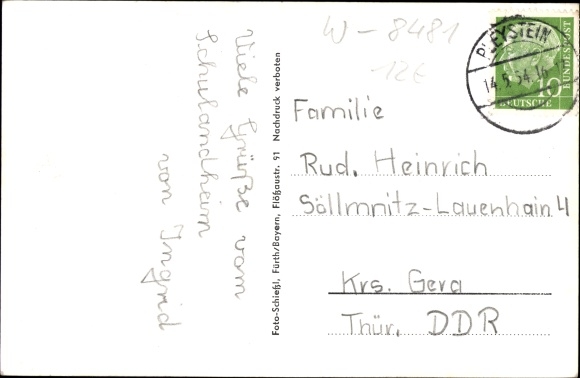 Viele Grüße vom
Schulandheim
von Ingrid
Foto-Schießl, Fürth/Bayern, Flößaustr. 91 Nachdruck verboten
W-8481
12€
PLEYSTEIN
14.5.54.16
10
DEUTSCHE
BUNDESPOST
Familie
Rud. Heinrich
Söllmnitz-Lauenhain 4
Krs. Gera
Thür, DDR